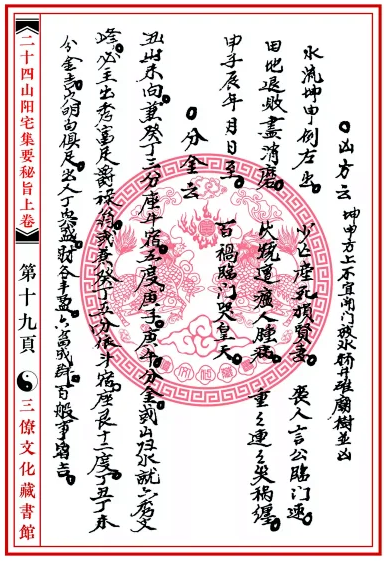 凶方云 坤申方上不宜開门放水轿井碓廟樹並凶
水流坤申倒左出 少亡产死損賢妻 喪人言公臨门速
田地退敗盡消磨 火䟽遭瘟人腫 重之連之失禍纏
甲子辰年月日至 百禍臨门哭皇天
分金云
丑山未向兼癸丁三分座牛宿五度庚子庚午分金或山归水就六秀文
峰必主出秀富足爵祿若或兼癸丁五分依斗宿座艮十二度丁丑丁未
分金吉穴明向俱足出人丁興盛財谷丰盈六畜成群百般事皆吉
二十四山阳宅集要秘旨上卷
第十九頁
三僚文化藏書館